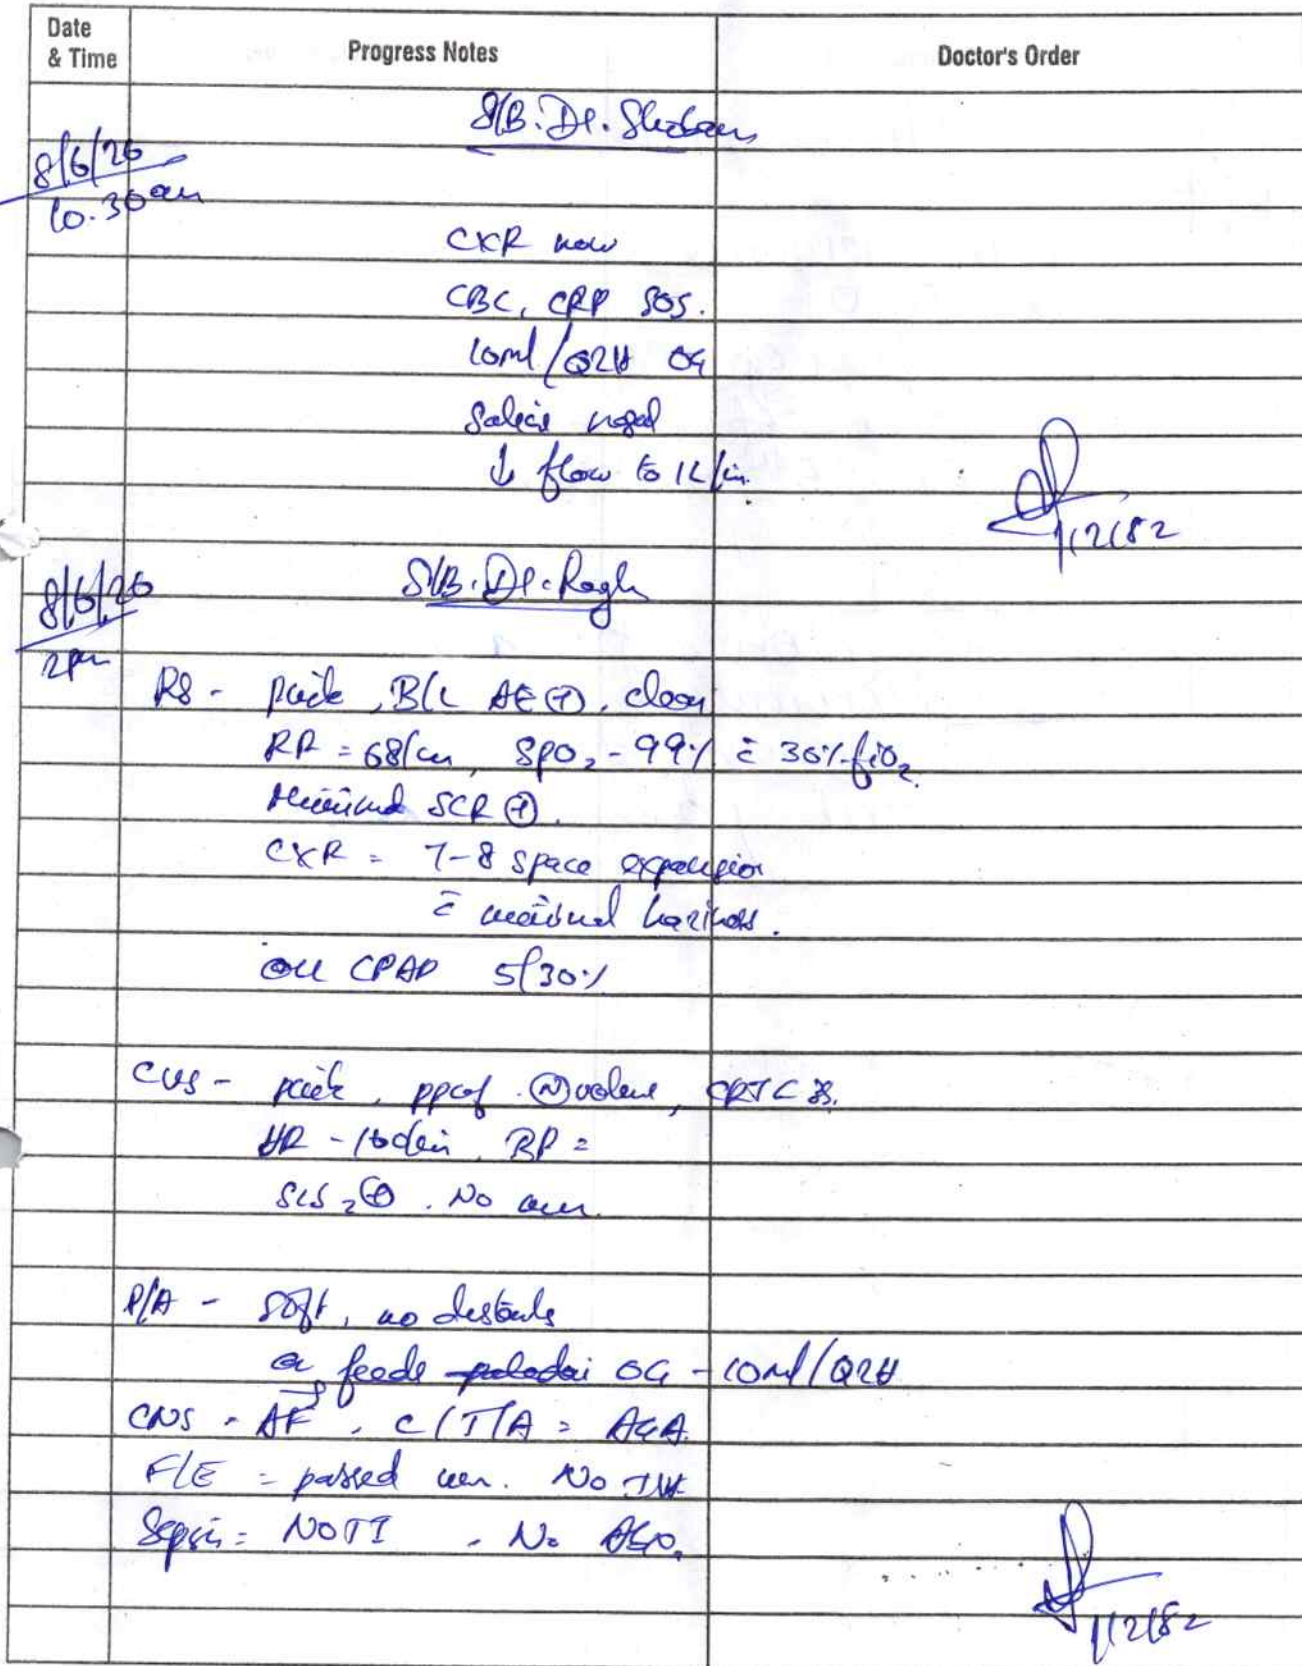 Date & Time
Progress Notes
Doctor's Order
S/B. Dr.
8/6/26
10.30am
CXR now
CBC, CRP SOS.
10ml/Q2H OG
Saline nasal
↓ flow to 1L/min
112182
8/6/26
S/B. Dr. Raghu
2pm
RS - pink, B/L AE⊕, clear
RR = 68/min, SPO₂ - 99% c̄ 30% fiO₂
Minimal SCR ⊕.
CXR = 7-8 space expansion
c̄ minimal haziness.
on CPAP 5/30%
CVS - pink, ppwf. Ⓝ volume, CRT < 3s.
HR - /min, BP =
S1S2⊕. No mur.
P/A - soft, no distends
on feeds paladai OG - 10ml/Q2H
CNS - AF, C/T/A = AGA
F/E = passed urine. No IVF
Sepsis = NOTI. No
112182